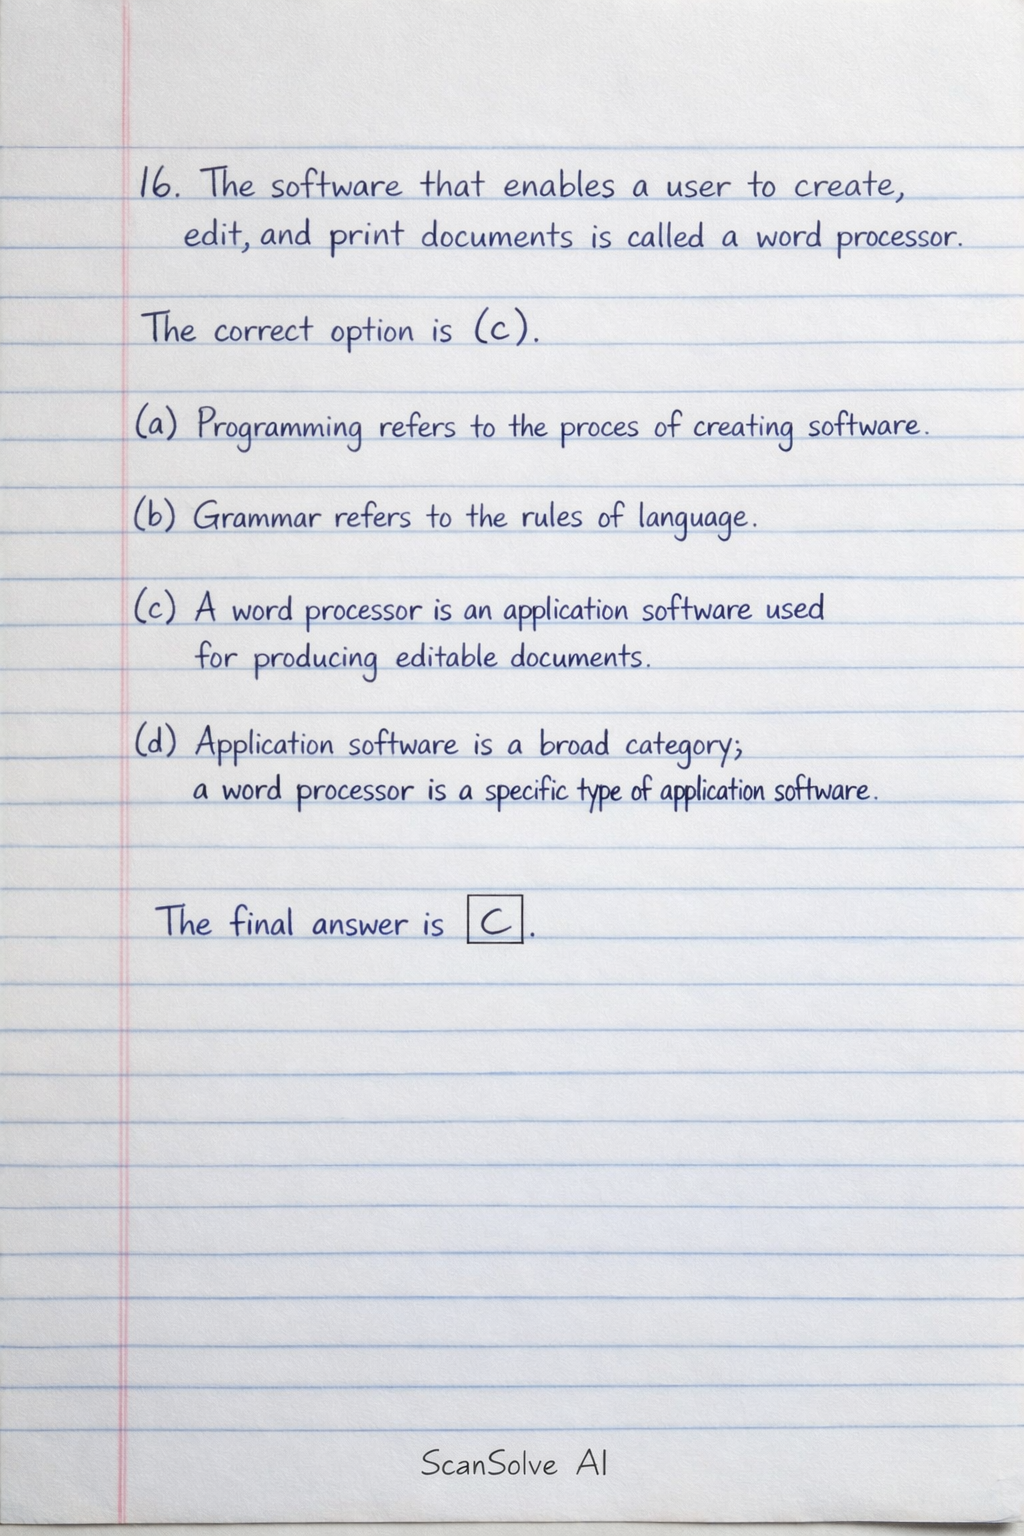 16. The software that enables a user to create,
edit, and print documents is called a word processor.
The correct option is (c).
(a) Programming refers to the proces of creating software.
(b) Grammar refers to the rules of language.
(c) A word processor is an application software used
for producing editable documents.
(d) Application software is a broad category;
a word processor is a specific type of application software.
The final answer is C.
ScanSolve AI